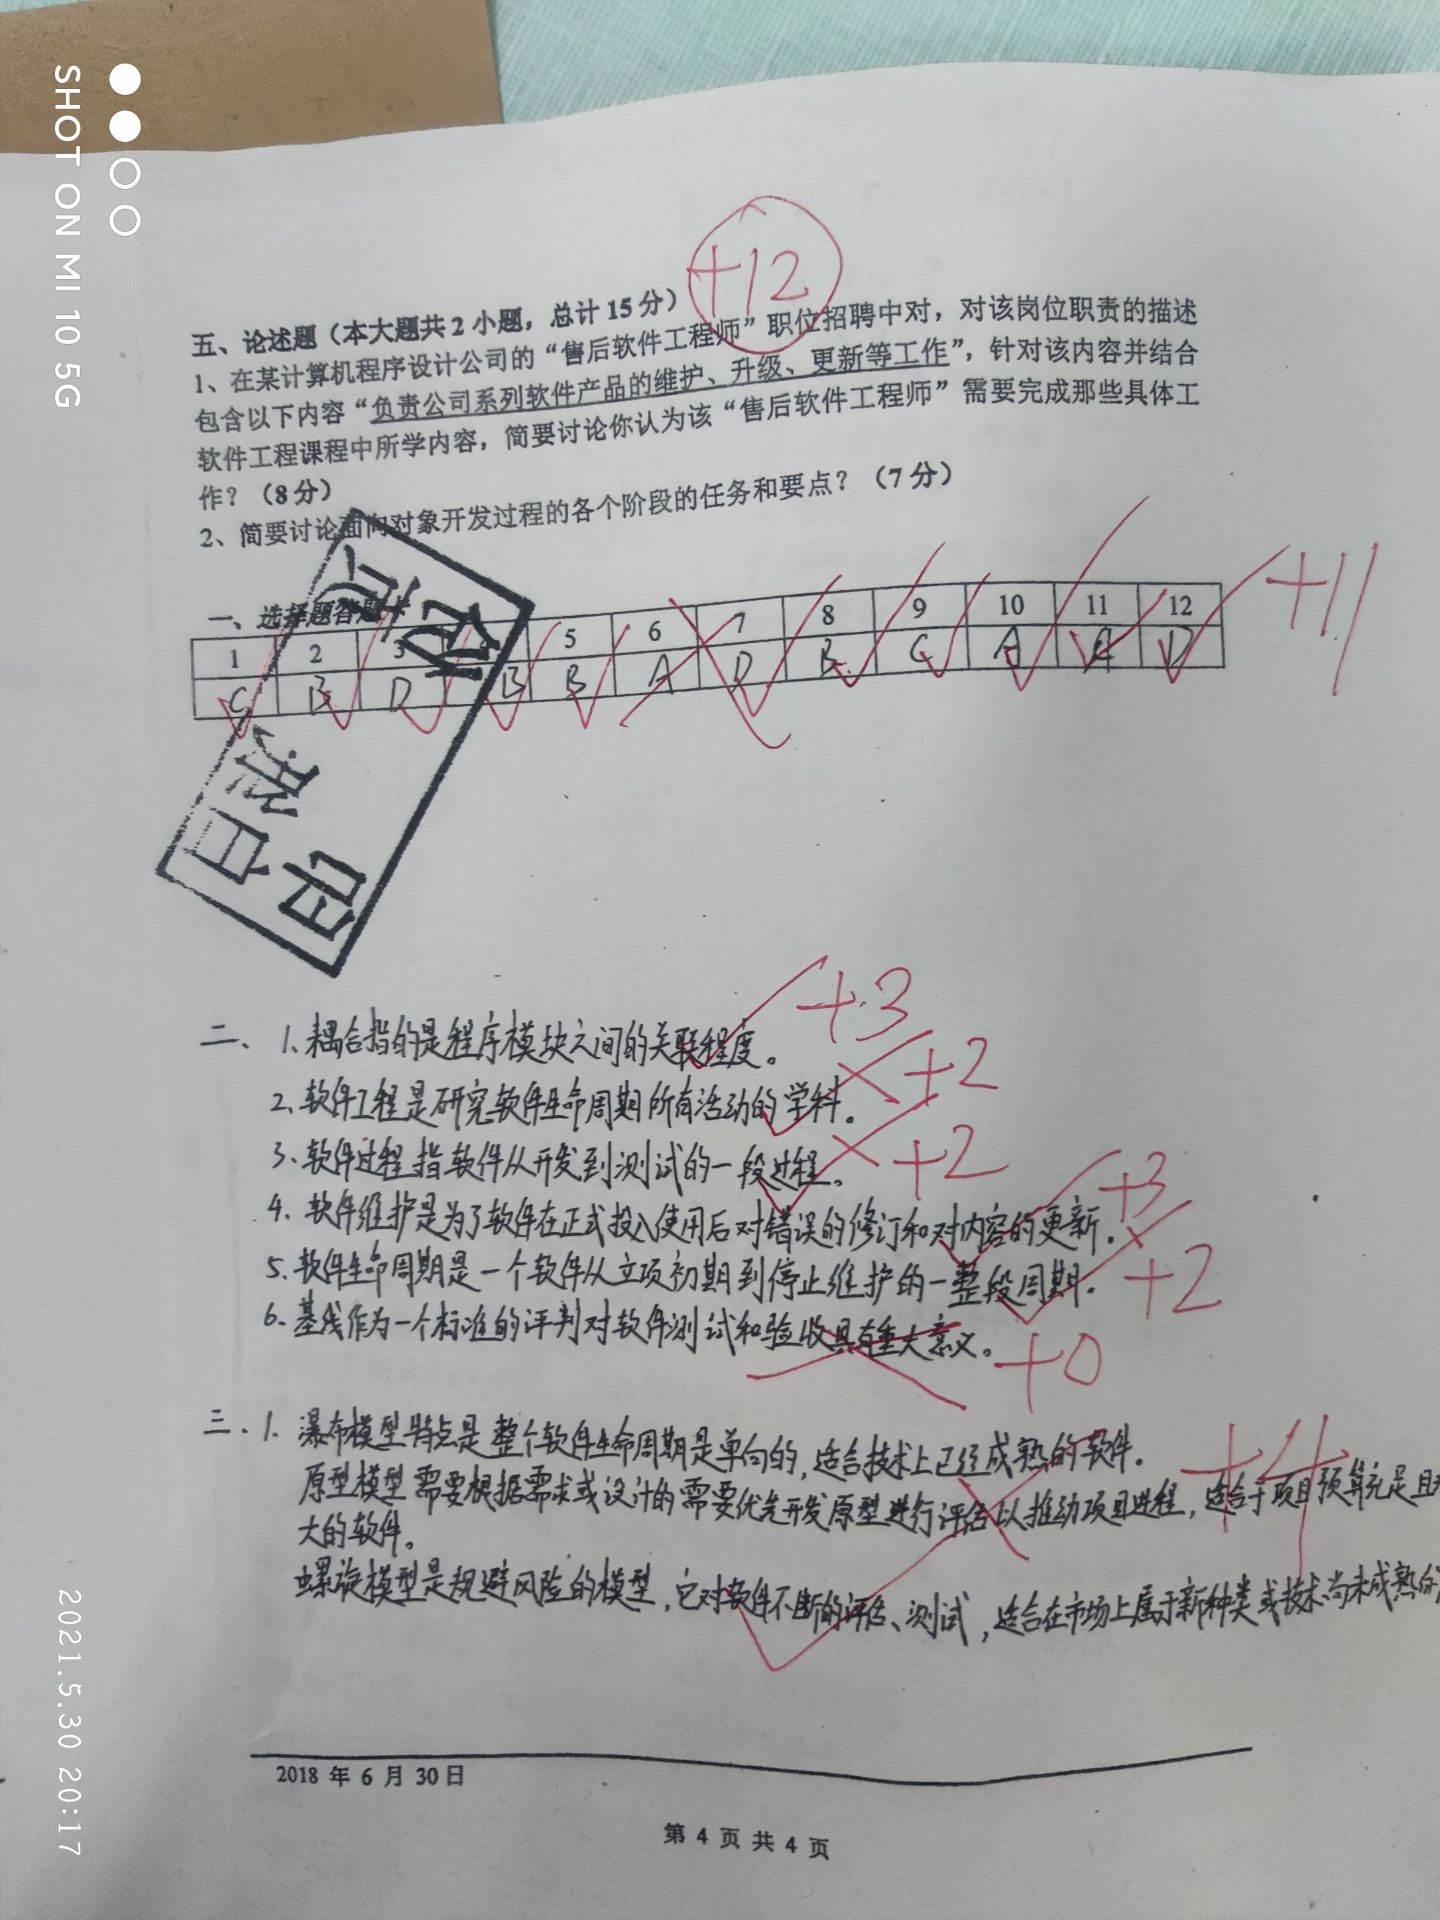 +12
五、论述题（本大题共2小题，总计15分）
1、在某计算机程序设计公司的“售后软件工程师”职位招聘中对，对该岗位职责的描述
包含以下内容“负责公司系列软件产品的维护、升级、更新等工作”，针对该内容并结合
软件工程课程中所学内容，简要讨论你认为该“售后软件工程师”需要完成那些具体工
作？（8分）
2、简要讨论面向对象开发过程的各个阶段的任务和要点？（7分）
一、选择题答题卡
1 2 3 5 6 7 8 9 10 11 12
C B D B B A D B C A D
+11
二、1、耦合指的是程序模块之间的关联程度。 +3
2、软件工程是研究软件生命周期所有活动的学科。 +2
3、软件过程指软件从开发到测试的一段过程。 +2
4、软件维护是为了软件在正式投入使用后对错误的修订和对内容的更新。 +3
5、软件生命周期是一个软件从立项初期到停止维护的一整段周期。 +2
6、基线作为一个标准的评判对软件测试和验收具有重大意义。 +0
三、1、瀑布模型特点是整个软件生命周期是单向的，适合技术上已经成熟的软件。 +4
原型模型需要根据需求或设计的需要优先开发原型进行评估以推动项目进程，适合于项目预算充足且
大的软件。
螺旋模型是规避风险的模型，它对软件不断的评估、测试，适合在市场上属于新种类或技术尚未成熟的
2018 年 6 月 30日
第 4 页 共 4 页
SHOT ON MI 10 5G
2021.5.30 20:17